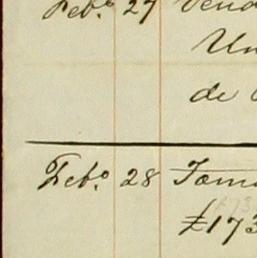 Febº 27 Vend
Un
de
Febº 28 Tom
£173